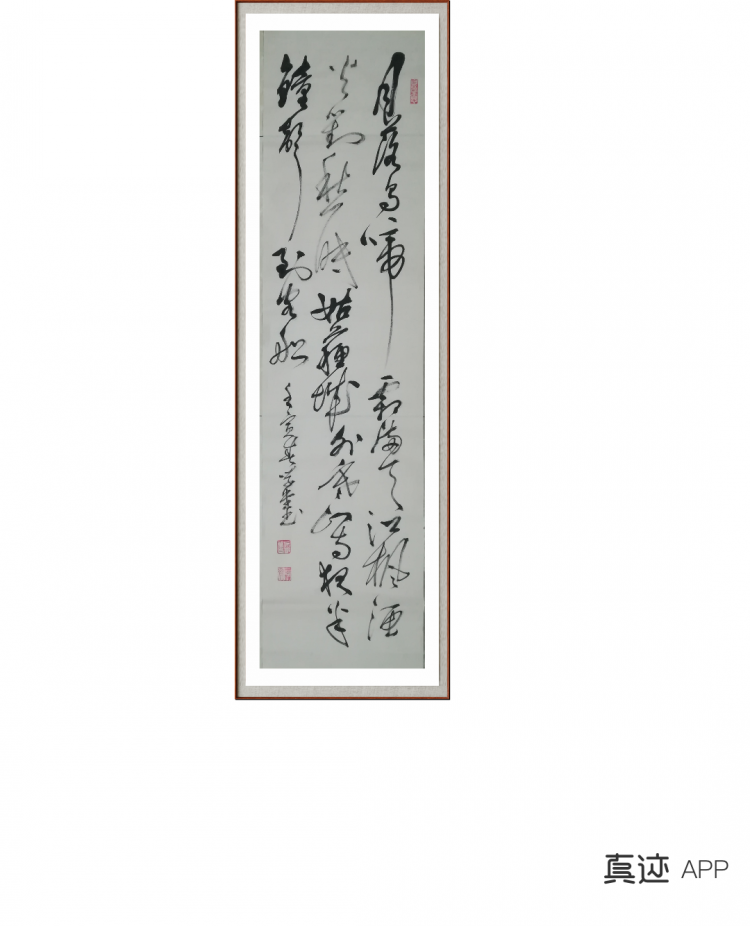 月落烏啼霜滿天江楓漁
火對愁眠姑蘇城外寒山寺夜半
鐘聲到客船
壬寅
真迹 APP